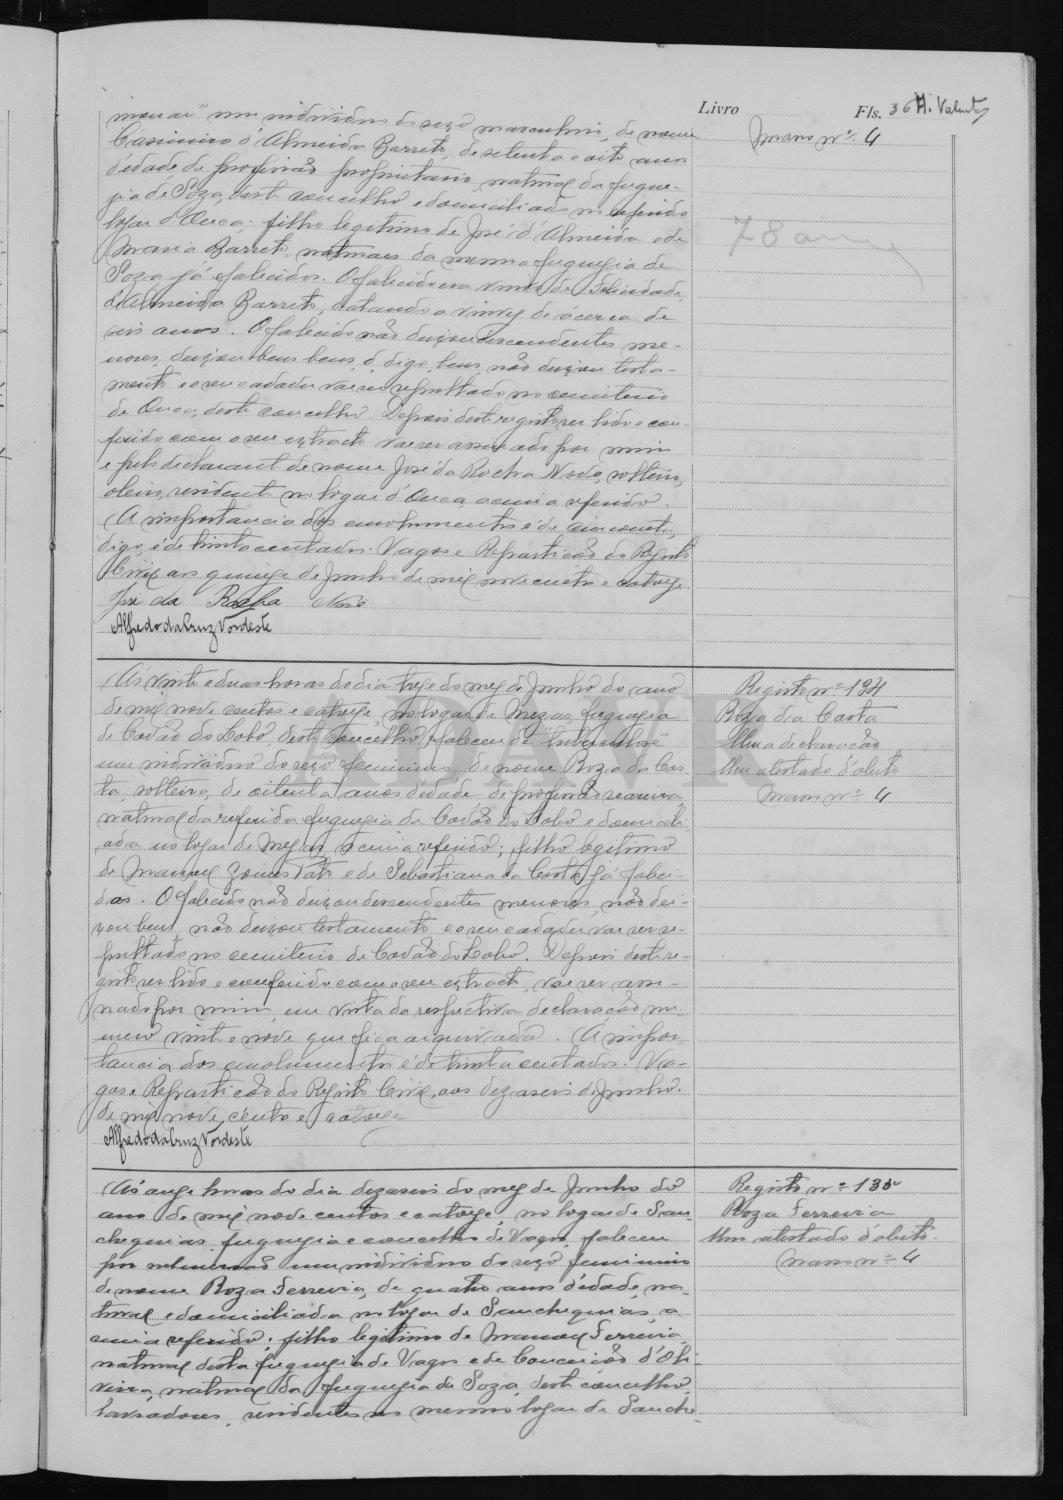 Livro
Fls. 36 H. Valente
um individuo do sexo masculino, de nome
Casimiro d'Almeida Barreto, de setenta e oito anos
d'edade, de profissão proprietario, natural da fregue-
zia de Soza, deste concelho e domiciliado no referido
logar d'Ouca; filho legitimo de José d'Almeida e de
Maria Barreto, naturaes da mesma freguezia de
Soza já falecidos. O falecido era viuvo de Felicidade
d'Almeida Barreto, datando a viuvez de acerca de
seis anos. O falecido não deixou descendentes me-
nores, deixou bens bens, d, digo, bens, não deixou testa-
mento e o seu cadaver vae ser sepultado no cemiterio
de Ouca, deste concelho. Depois deste registo ser lido e con-
ferido com o seu extracto vae ser assinado por mim
e pelo declarante de nome José da Rocha Novo, solteiro,
oleiro, residente no logar d'Ouca, acima referido.
A importancia dos emolumentos é de cincoenta,
digo, é de trinta centados. Vagos e Repartição do Registo
Civil aos quinze de Junho de mil nove centos e catorze.
José da Rocha Novo
Alfredo da Cruz Nordeste
Imans nº 4
78 anos
Ás vinte e duas horas do dia treze do mez de Junho do ano
de mil nove centos e catorze, no logar de Mezas, freguezia
de Covão do Lobo, deste concelho, faleceu de "tuberculose"
um individuo do sexo feminino, de nome Roza da Cos-
ta, solteira, de oitenta anos d'edade, de profissão
natural da referida freguezia de Covão do Lobo e domicili-
ada no logar de Mezas, acima referido; filho legitimo
de Manoel Pata e de Sebastiana da Costa, já faleci-
dos. O falecido não deixou descendentes menores, não dei-
xou bens, não deixou testamento e o seu cadaver vae ser se-
pultado no cemiterio de Covão do Lobo. Depois deste re-
gisto ser lido e conferido com o seu extracto, vae ser assi-
nado por mim, em vista da respectiva declaração nu-
mero vinte e nove que fica arquivada. A impor-
tancia dos emolumentos é de trinta centados. Va-
gos e Repartição do Registo Civil, aos dezaseis de Junho
de mil nove centos e catorze
Alfredo da Cruz Nordeste
Registo nº 134
Roza da Costa
Uma declaração
Um atestado d'obito
Imans nº 4
Ás onze horas do dia dezaseis do mez de Junho do
ano de mil nove centos e catorze, no logar de San-
chequias, freguezia e concelho de Vagos, faleceu
por um individuo do sexo feminino
de nome Roza Ferreira, de quatro anos d'edade, na-
tural e domiciliada no logar de Sanchequias, a-
cima referido; filho legitimo de Manoel Ferreira,
natural desta freguezia de Vagos e de Conceição d'Oli-
veira, natural da freguezia de Soza, deste concelho,
lavradores, residentes no mesmo logar de Sanche-
Registo nº 135
Roza Ferreira
Um atestado d'obito.
Imans nº 4